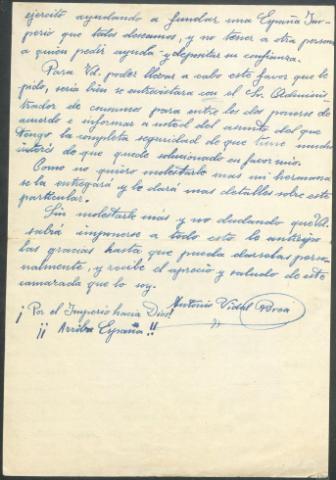 ejercito ayudando a fundar una España Im-
perio que todos deseamos, y no tener a otra persona
a quien pedir ayuda y depositar su confianza.
Para Vd. poder llevar a cabo este favor que le
pido, seria bien se entrevistara con el Sr. Adminis-
trador de consumos para entre los dos poneros de
acuerdo e informar a usted del asunto del que
tengo la completa seguridad de que tiene mucho
interés de que quede solucionado en favor mio.
Como no quiero molestarle mas mi hermana
se la entregará y le dará mas detalles sobre este
particular.
Sin molestarle más y no dudando que Vd.
sabrá imponerse a todo esto le anticipo
las gracias hasta que pueda darselas perso-
nalmente, y recibe el aprecio y saludo de este
camarada que lo soy.
Antonio Vidal
¡Por el Imperio hacia Dios!
¡¡Arriba España!!